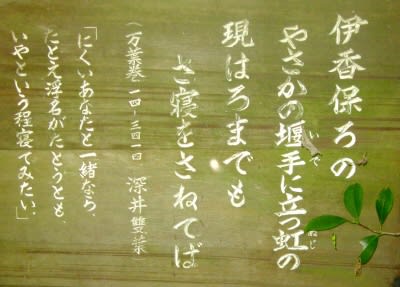 伊香保ろの
やさかの堰手に立つ虹の
いで
ぬじ
現はろまでも
さ寝をさねてば
(万葉巻一四-三四一四 深井雙葉
「にくいあなたと一緒なら、
たとえ浮名がたとうとも、
いやという程寝てみたい。」